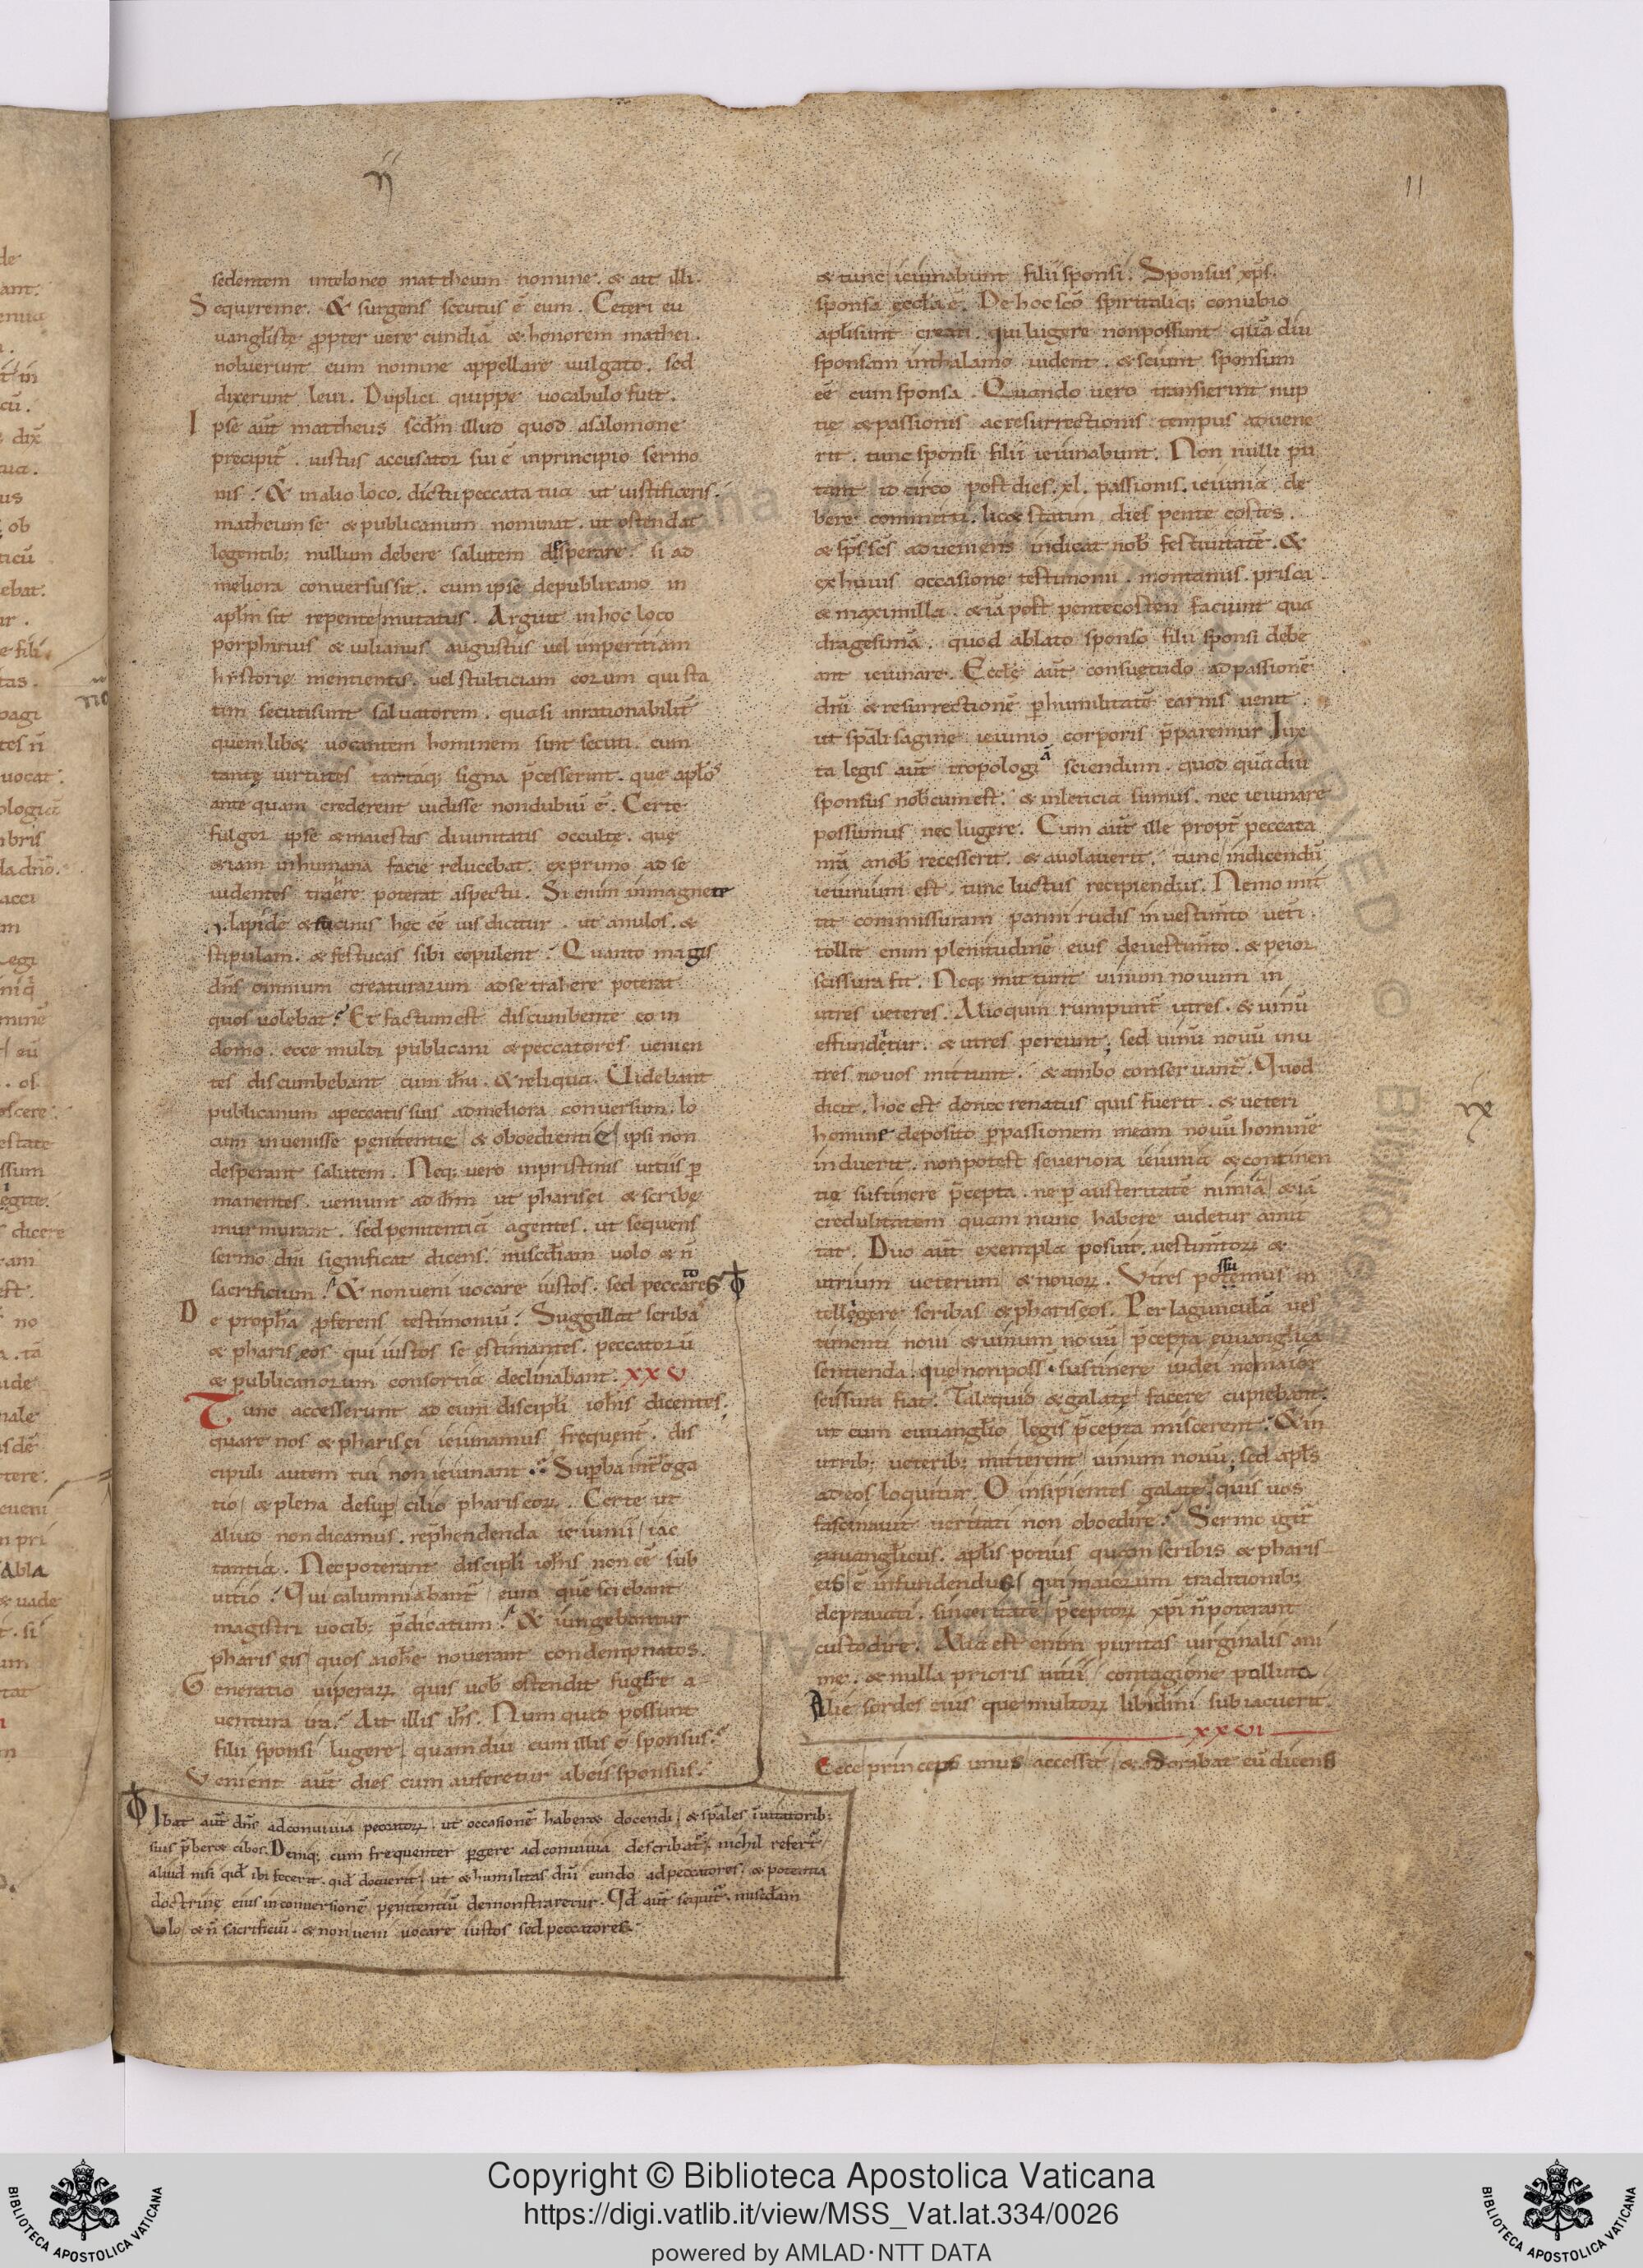 ıı
11
sedentem inteloneo mattheum nomine. & ait illi.
Sequereme. & surgens secutus ē eum. Ceteri eu
uangl̄iste ꝓpter uere cundiā & honorem mathei.
noluerunt eum nomine appellare uulgato. sed
dixerunt leui. Duplici quippe uocabulo fuit.
Ipse aūt mattheus scd̄m illud quod asalomone
precipit̄. iustus accusator sui ē inprincipio sermo
nis. & inalio loco. dictu peccata tua ut iustificeris.
matheum se & publicanum nominat. ut ostendat
legentib; nullum debere salutem desperare. si ad
meliora conuersus sit. cum ipse depublicano in
apl̄m sit repente mutatus. Arguit inhoc loco
porphirius & iulianus augustus uel inperitiam
hystorię mentientis. uel stulticiam eorum qui sta
tim secutisunt saluatorem. quasi inrationabilit̄
quemlibet uocantem hominem sint secuti. cum
tantę uirtutes tantaq; signa p̄cesserint. que apl̄os
ante quam crederent uidisse nondubiū ē. Certe
fulgor ipse & maiestas diuinitatis occultę. quę
etiam inhumana facie relucebat. exprimo ad se
uidentes trahere poterat aspectu. Si enim inmagnete
lapide & sucinis hec eē uis dicitur. ut anulos. &
stipulam. & festucas sibi copulent. Quanto magis
dn̄s omnium creaturarum adse trahere poterat
quos uolebat. Et factum est discumbente eo in
domo. ecce multi publicani & peccatores uenien
tes discumbebant cum ih̄u. & reliqua. Uidebant
publicanum apeccatis suis admeliora conuersum. lo
cum inuenisse penitentię & oboedientię ipsi non
desperant salutem. Neq; uero inpristinis uitiis p̄
manentes. ueniunt ad ih̄m ut pharisei & scribę
murmurant. sed penitentiā agentes. ut sequens
sermo dn̄i significat dicens. misc̄diam uolo & n̄
sacrificium. & non ueni uocare iustos. sed peccatores
De proph̄a p̄ferens testimoniū. Suggillat scribas
& phariseos qui iustos se estimantes. peccatorū
& publicanorum consortia declinabant. XXV
Tunc accesserunt ad eum discipl̄i ioh̄is dicentes.
quare nos & pharisei ieiunamus frequent̄. dis
cipuli autem tui non ieiunant. Supba int̄roga
tio & plena desup cilio phariseoꝝ. Certe ut
aliud non dicamus. rep̄hendenda ieiunii iac
tantia. Nec poterant discipl̄i ioh̄is non eē sub
uitio. Qui calumniabant̄ eum que sciebant
magistri uocib; p̄dicatum. & iungebantur
phariseis quos aioh̄e nouerant condempnatos.
Generatio uiperaꝝ quis uob̄ ostendit fugere a
uentura ira. Ait illis ih̄s. Num quid possunt
filii sponsi lugere quamdiu cum illis ē sponsus.
Uenient aūt dies cum auferetur abeis sponsus.
& tunc ieiunabunt filii sponsi. Sponsus xp̄s.
sponsa eccl̄a ē. De hoc sc̄o spiritaliq; conubio
apl̄i sunt creati. qui lugere non possunt quādiu
sponsam inthalamo uident. & sciunt sponsum
eē cum sponsa. Quando uero transierint nup
tię & passionis ac resurrectionis tempus aduene
rit. tunc sponsi filii ieiunabunt. Non nulli pu
tant id circo post dies. xl. passionis. ieiunia de
bere committi. licet statim dies pente costes.
& sp̄s sc̄s adueniens indicat nob̄ festiuitatē. &
ex huius occasione testimonii. montanus. prisca
& maximilla. etiā post pentecosten faciunt qua
dragesimā. quod ablato sponso filii sponsi debe
ant ieiunare. Eccl̄ę aūt consuetudo ad passionē
dn̄i & resurrectionē p humilitatē carnis uenit.
ut sp̄ali sagine ieiunio corporis p̄paremur. Iux
ta legis aūt tropologiā sciendum. quod quādiu
sponsus nob̄cum est. & inleticia sumus. nec ieiunare
possumus nec lugere. Cum aūt ille propt̄ peccata
nr̄a anob̄ recesserit. & auolauerit. tunc indicendū
ieiunium est. tunc luctus recipiendus. Nemo mit
tit commissuram panni rudis in uestim̄to uet̄i
tollit enim plenitudinē eius deuestim̄to. & peior
scissura fit. Neq; mittunt uinum nouum in
utres ueteres. Alioquin rumpunt̄ utres. & uinū
effundetur. & utres pereunt; sed uinū nouū inu
tres nouos mittunt. & ambo conseruant̄. Quod
dicit. hoc est donec renatus quis fuerit. & ueteri
homine deposito p passionem meam nouū hominē
induerit. non potest seueriora ieiunia & continen
tię sustinere p̄cepta. ne p austeritatē nimiā etiā
credulitatem quam nunc habere uidetur amit
tat. Duo aūt exempla posuit. uestim̄toꝝ &
utrium ueterum & nouoꝝ. Utres possumus in
tellegere scribas & phariseos. Per lagunculā ues
timenti noui & uinum nouū p̄cepta euuangl̄ica
sentienda. que non poss̄ sustinere iudei ne maior
scissura fiat. Tale quid & galatę facere cupiebant.
ut cum euuangl̄io legis p̄cepta miscerent. & in
utrib; ueterib; mitterent uinum nouū; sed apl̄s
ad eos loquitur. O insipientes galatę. quis uos
fascinauit ueritati non oboedire. Sermo igit̄
euuangl̄icus. apl̄is potius quam scribis & pharis
eis ē infundendus qui maiorum traditionib;
deprauati. sinceritatē p̄ceptoꝝ xp̄i n̄ poterant
custodire. Alia est enim puritas uirginalis ani
me. & nulla prioris uitii contagione polluta
Alie sordes eius que multoꝝ libidini subiacuerit.
XXVI
Ecce princeps unus accessit & adorabat eū dicens
Ibat aūt dn̄s ad conuiuia peccatoꝝ. ut occasionē haberet docendi. & sp̄ales inuitatorib;
suis p̄beret cibos. Deniq; cum frequenter pgere ad conuiuia describat̄. nichil refert̄
aliud nisi qd̄ ibi fecerit. qd̄ docuerit ut & humilitas dn̄i eundo ad peccatores. & potentia
doctrinę eius in conuersionē penitentiū demonstraretur. Qd̄ aūt sequit̄. misc̄diam
uolo & n̄ sacrificiū. & non ueni uocare iustos sed peccatores.
BIBLIOTECA APOSTOLICA VATICANA
Copyright © Biblioteca Apostolica Vaticana
https://digi.vatlib.it/view/MSS_Vat.lat.334/0026
powered by AMLAD·NTT DATA
BIBLIOTECA APOSTOLICA VATICANA